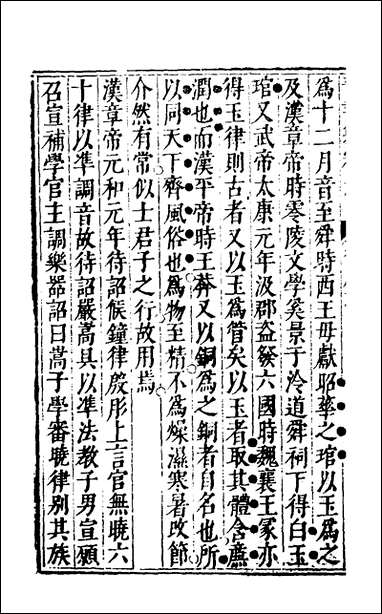 爲十二月音至舜時西王母獻昭華之琯以玉爲之
及漢章帝時零陵文學奚景于泠道舜祠下得白玉
琯又武帝太康元年汲郡盜發六國時魏襄王冢亦
得玉律則古者又以玉爲管矣以玉者取其體含廉
潤也而漢平帝時王莽又以銅爲之銅者自名也所
以同天下齊風俗也爲物至精不爲燥濕寒暑改節
介然有常似士君子之行故用焉
漢章帝元和元年待詔候鐘律殷肜上言官無曉六
十律以準調音故待詔嚴嵩具以準法教子男宣願
召宣補學官主調樂器詔曰嵩子學審曉律别其族